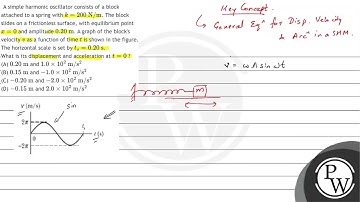 A simple harmonic oscillator consists of a block
attached to a spring with k = 200 N/m. The block
slides on a frictionless surface, with equilibrium point
x = 0 and amplitude 0.20 m. A graph of the block's
velocity v as a function of time t is shown in the figure.
The horizontal scale is set by tₛ = 0.20 s.
What is its displacement and acceleration at t = 0 ?
(A) 0.20 m and 1.0 × 10² m/s²
(B) 0.15 m and -1.0 × 10² m/s²
(C) -0.20 m and -2.0 × 10² m/s²
(D) -0.15 m and 2.0 × 10² m/s²
v (m/s)
2π
0
-2π
tₛ
t (s)
sin
Key Concept -
General Eqⁿ for Disp. Velocity
& Accⁿ in a SHM.
v = ωA sin ωt
m
PW